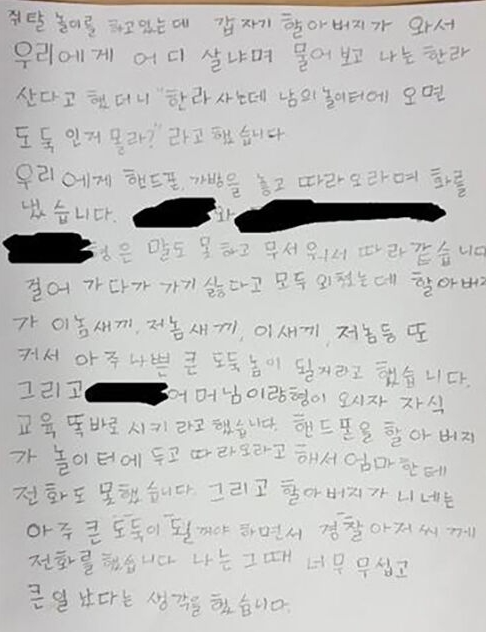 쥐탈 놀이를 하고있는데 갑자기 할아버지가 와서
우리에게 어디 살냐며 물어보고 나는 한라
산다고 했더니 "한라사는데 남의놀이터에 오면
도둑인거 몰라?" 라고 했습니다
우리에게 핸드폰, 가방을 놓고 따라오라며 화를
냈습니다. 와
형은 말도 못하고 무서워서 따라갔습니다
걸어 가다가 가기 싫다고 모두 외쳤는데 할아버지
가 이놈새끼, 저놈새끼, 이새끼, 저놈등 또
커서 아주 나쁜 큰 도둑놈이 될거라고 했습니다.
그리고 어머님이랑형이 오시자 자식
교육 똑바로 시키라고했습니다. 핸드폰을 할아버지
가 놀이터에 두고 따라오라고 해서 엄마한테
전화도 못했습니다. 그리고 할아버지가 니네는
아주 큰 도둑이 될꺼야 하면서 경찰아저씨께
전화를 했습니다 나는 그때 너무 무섭고
큰일 났다는 생각을 했습니다.